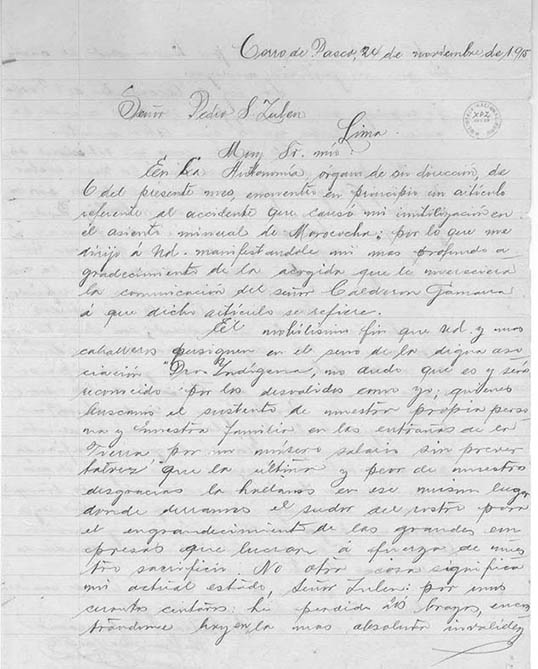 Cerro de Pasco, 24 de noviembre de 1915
Señor Pedro S. Zulen
Lima.
Muy Sr. mio:
En La Autonomía, organo de su dirección, de
6 del presente mes, encuentro en principio un articulo
referente al accidente que causó mi inutilización en
el asiento mineral de Morococha; por lo que me
dirijo á Ud. manifestandole mi mas profundo a-
gradecimiento de la acogida que le mereciera
la comunicación del señor Calderon Gamarra
á que dicho artículo se refiere.
El nobilísimo fin que Ud. y mas
caballeros persiguen en el seno de la digna aso
ciación "Pro-Indígena", no dudo que es y será
reconocido por los desvalidos como yo; quienes
buscamos el sustento de nuestra propia perso
na y nuestra familia en las entrañas de la
Tierra por un mísero salario sin prever
talvez que la última y peor de nuestras
desgracias la hallamos en ese mismo lugar
donde derramos el sudor del rostro para
el engrandecimiento de las grandes em
presas que lucran á fuerza de nues
tro sacrificio. No otra cosa significa
mi actual estado, Señor Zulen: por unos
cuantos centavos he perdido los brazos, encon
trándome hoy en la mas absoluta invalidez